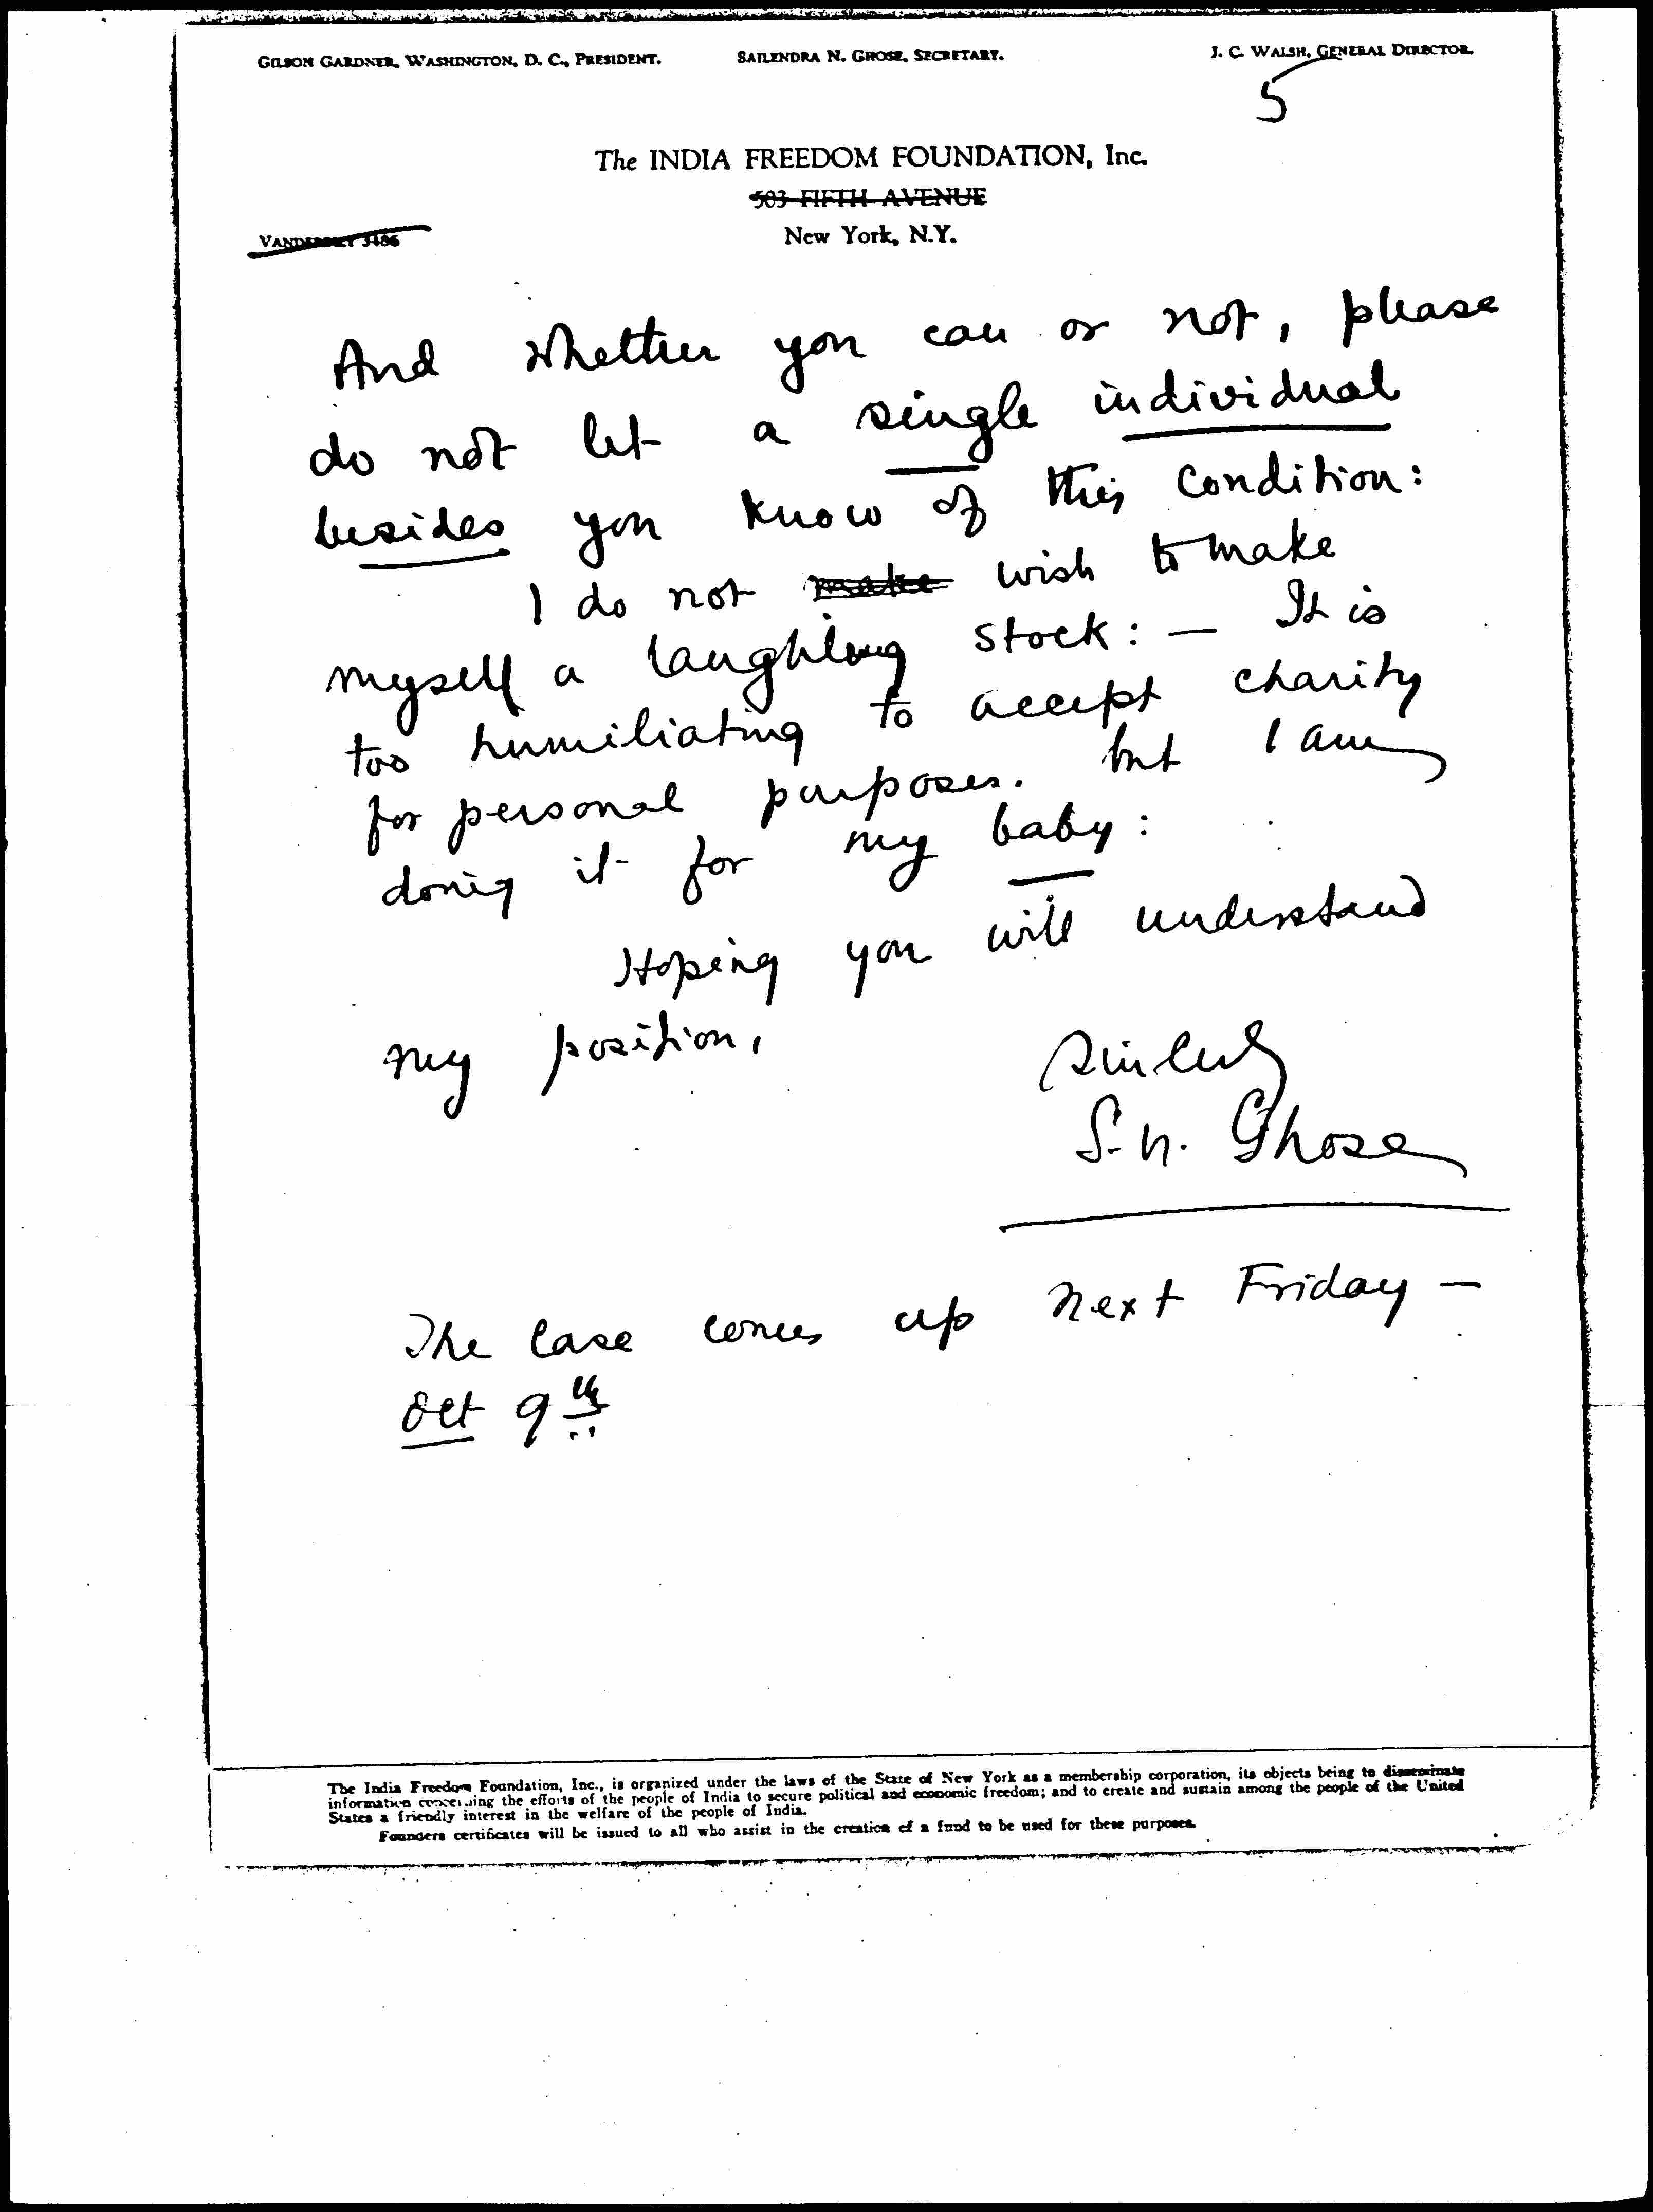 GILSON GARDNER, WASHINGTON, D. C., PRESIDENT. SAILENDRA N. GHOSE, SECRETARY. J. C. WALSH, GENERAL DIRECTOR.
5
The INDIA FREEDOM FOUNDATION, Inc.
503 FIFTH AVENUE
VANDERBILT 3486 New York, N.Y.
And whether you can or not, please
do not let a single individual
besides you know of this condition:
I do not make wish to make
myself a laughing stock: — It is
too humiliating to accept charity
for personal purposes. but I am
doing it for my baby:
Hoping you will understand
my position,
Sincerely
S. N. Ghose
The case comes up next Friday —
Oct 9th
The India Freedom Foundation, Inc., is organized under the laws of the State of New York as a membership corporation, its objects being to disseminate
information concerning the efforts of the people of India to secure political and economic freedom; and to create and sustain among the people of the United
States a friendly interest in the welfare of the people of India.
Founders certificates will be issued to all who assist in the creation of a fund to be used for these purposes.